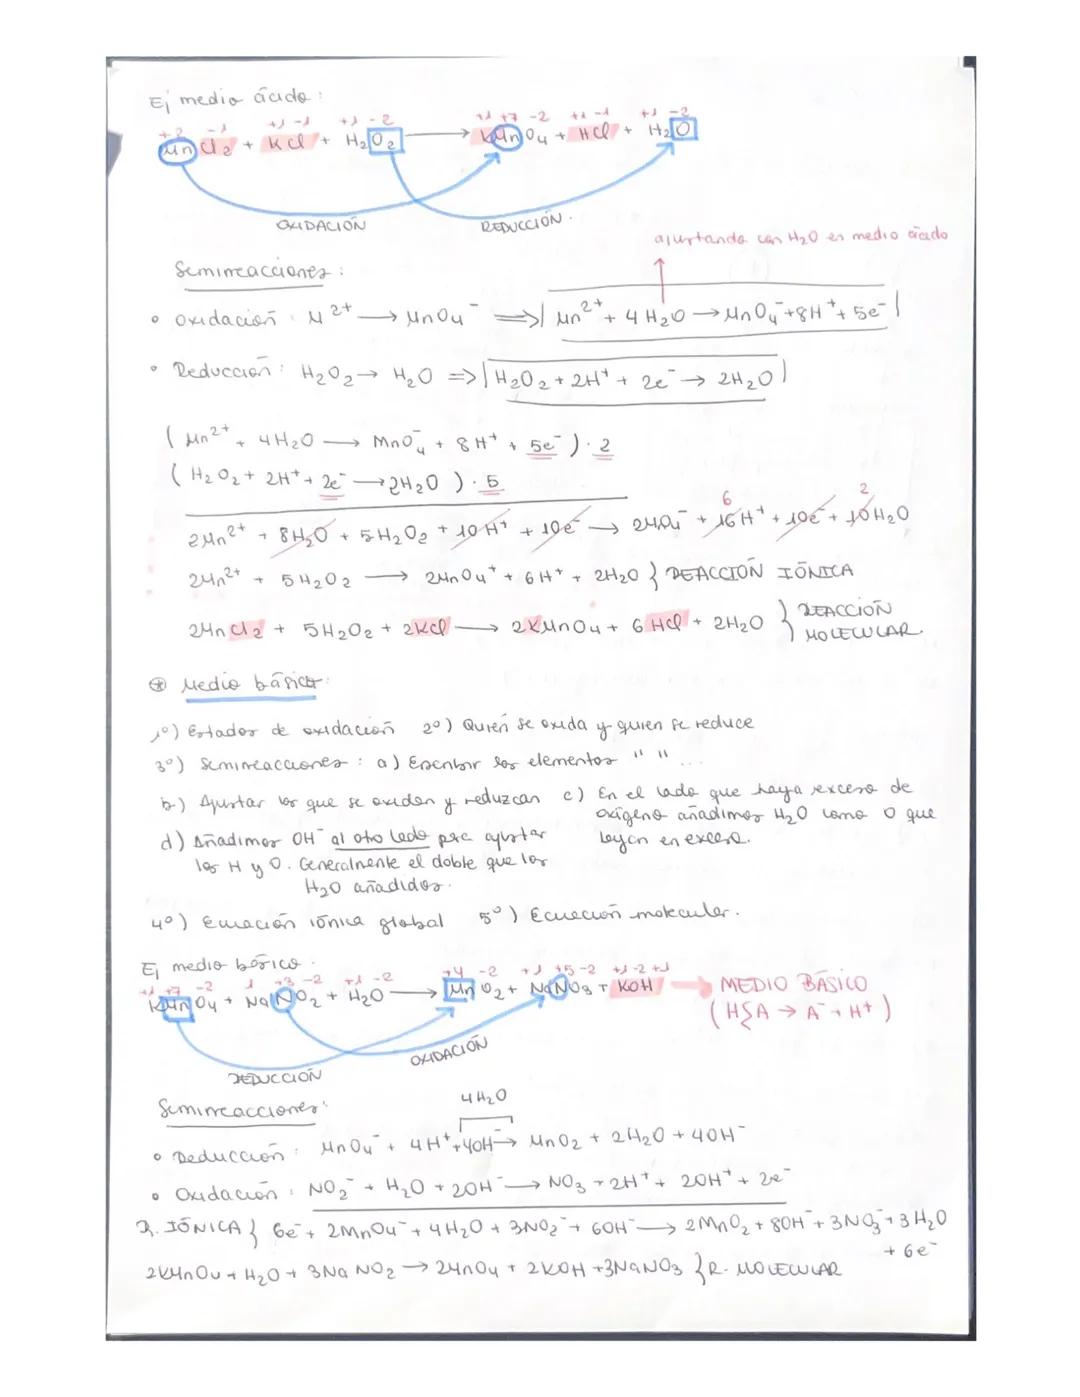 Ej medio ácido:
+2 -1 +1 -1 +1 -2 +1 +7 -2 +1 -1 +1 -2
MnCl2 + KCl + H2O2 → KMnO4 + HCl + H2O
OXIDACIÓN REDUCCIÓN.
ajustando con H2O en medio ácido
Semirreacciones:
• Oxidación: M²⁺ → MnO4⁻ ⇒ | Mn²⁺ + 4H2O → MnO4⁻ + 8H⁺ + 5e⁻ |
• Reducción: H2O2 → H2O ⇒ | H2O2 + 2H⁺ + 2e⁻ → 2H2O |
( Mn²⁺ + 4H2O → MnO4⁻ + 8H⁺ + 5e⁻ ) · 2
( H2O2 + 2H⁺ + 2e⁻ → 2H2O ) · 5
6 2
2Mn²⁺ + 8H2O + 5H2O2 + 10H⁺ + 10e⁻ → 2MnO4⁻ + 16H⁺ + 10e⁻ + 10H2O
2Mn²⁺ + 5H2O2 → 2MnO4⁺ + 6H⁺ + 2H2O } REACCIÓN IÓNICA
2MnCl2 + 5H2O2 + 2KCl → 2KMnO4 + 6HCl + 2H2O } REACCIÓN MOLECULAR.
⊛ Medio básico:
1º) Estados de oxidación 2º) Quien se oxida y quien se reduce
3º) Semirreacciones: a) Escribir los elementos " " ...
b) Ajustar los que se oxiden y reduzcan c) En el lado que haya exceso de
oxígeno añadimos H2O como O que
d) Añadimos OH⁻ al otro lado para ajustar hayan en exceso.
los H y O. Generalmente el doble que los
H2O añadidos.
4º) Ecuación iónica global 5º) Ecuación molecular.
Ej medio básico.
+1 +7 -2 1 +3 -2 +1 -2 +4 -2 +1 +5 -2 +1 -2 +1
KMnO4 + NaNO2 + H2O → MnO2 + NaNO3 + KOH → MEDIO BÁSICO
(H}A → A⁻ + H⁺)
REDUCCIÓN OXIDACIÓN
Semirreacciones:
4H2O
• Reducción: MnO4⁻ + 4H⁺ + 4OH⁻ → MnO2 + 2H2O + 4OH⁻
• Oxidación: NO2⁻ + H2O + 2OH⁻ → NO3 + 2H⁺ + 2OH⁺ + 2e⁻
R. IÓNICA } 6e⁻ + 2MnO4⁻ + 4H2O + 3NO2⁻ + 6OH⁻ → 2MnO2 + 8OH⁻ + 3NO3⁻ + 3H2O
+ 6e⁻
2KMnO4 + H2O + 3NaNO2 → 2MnO4 + 2KOH + 3NaNO3 } R. MOLECULAR